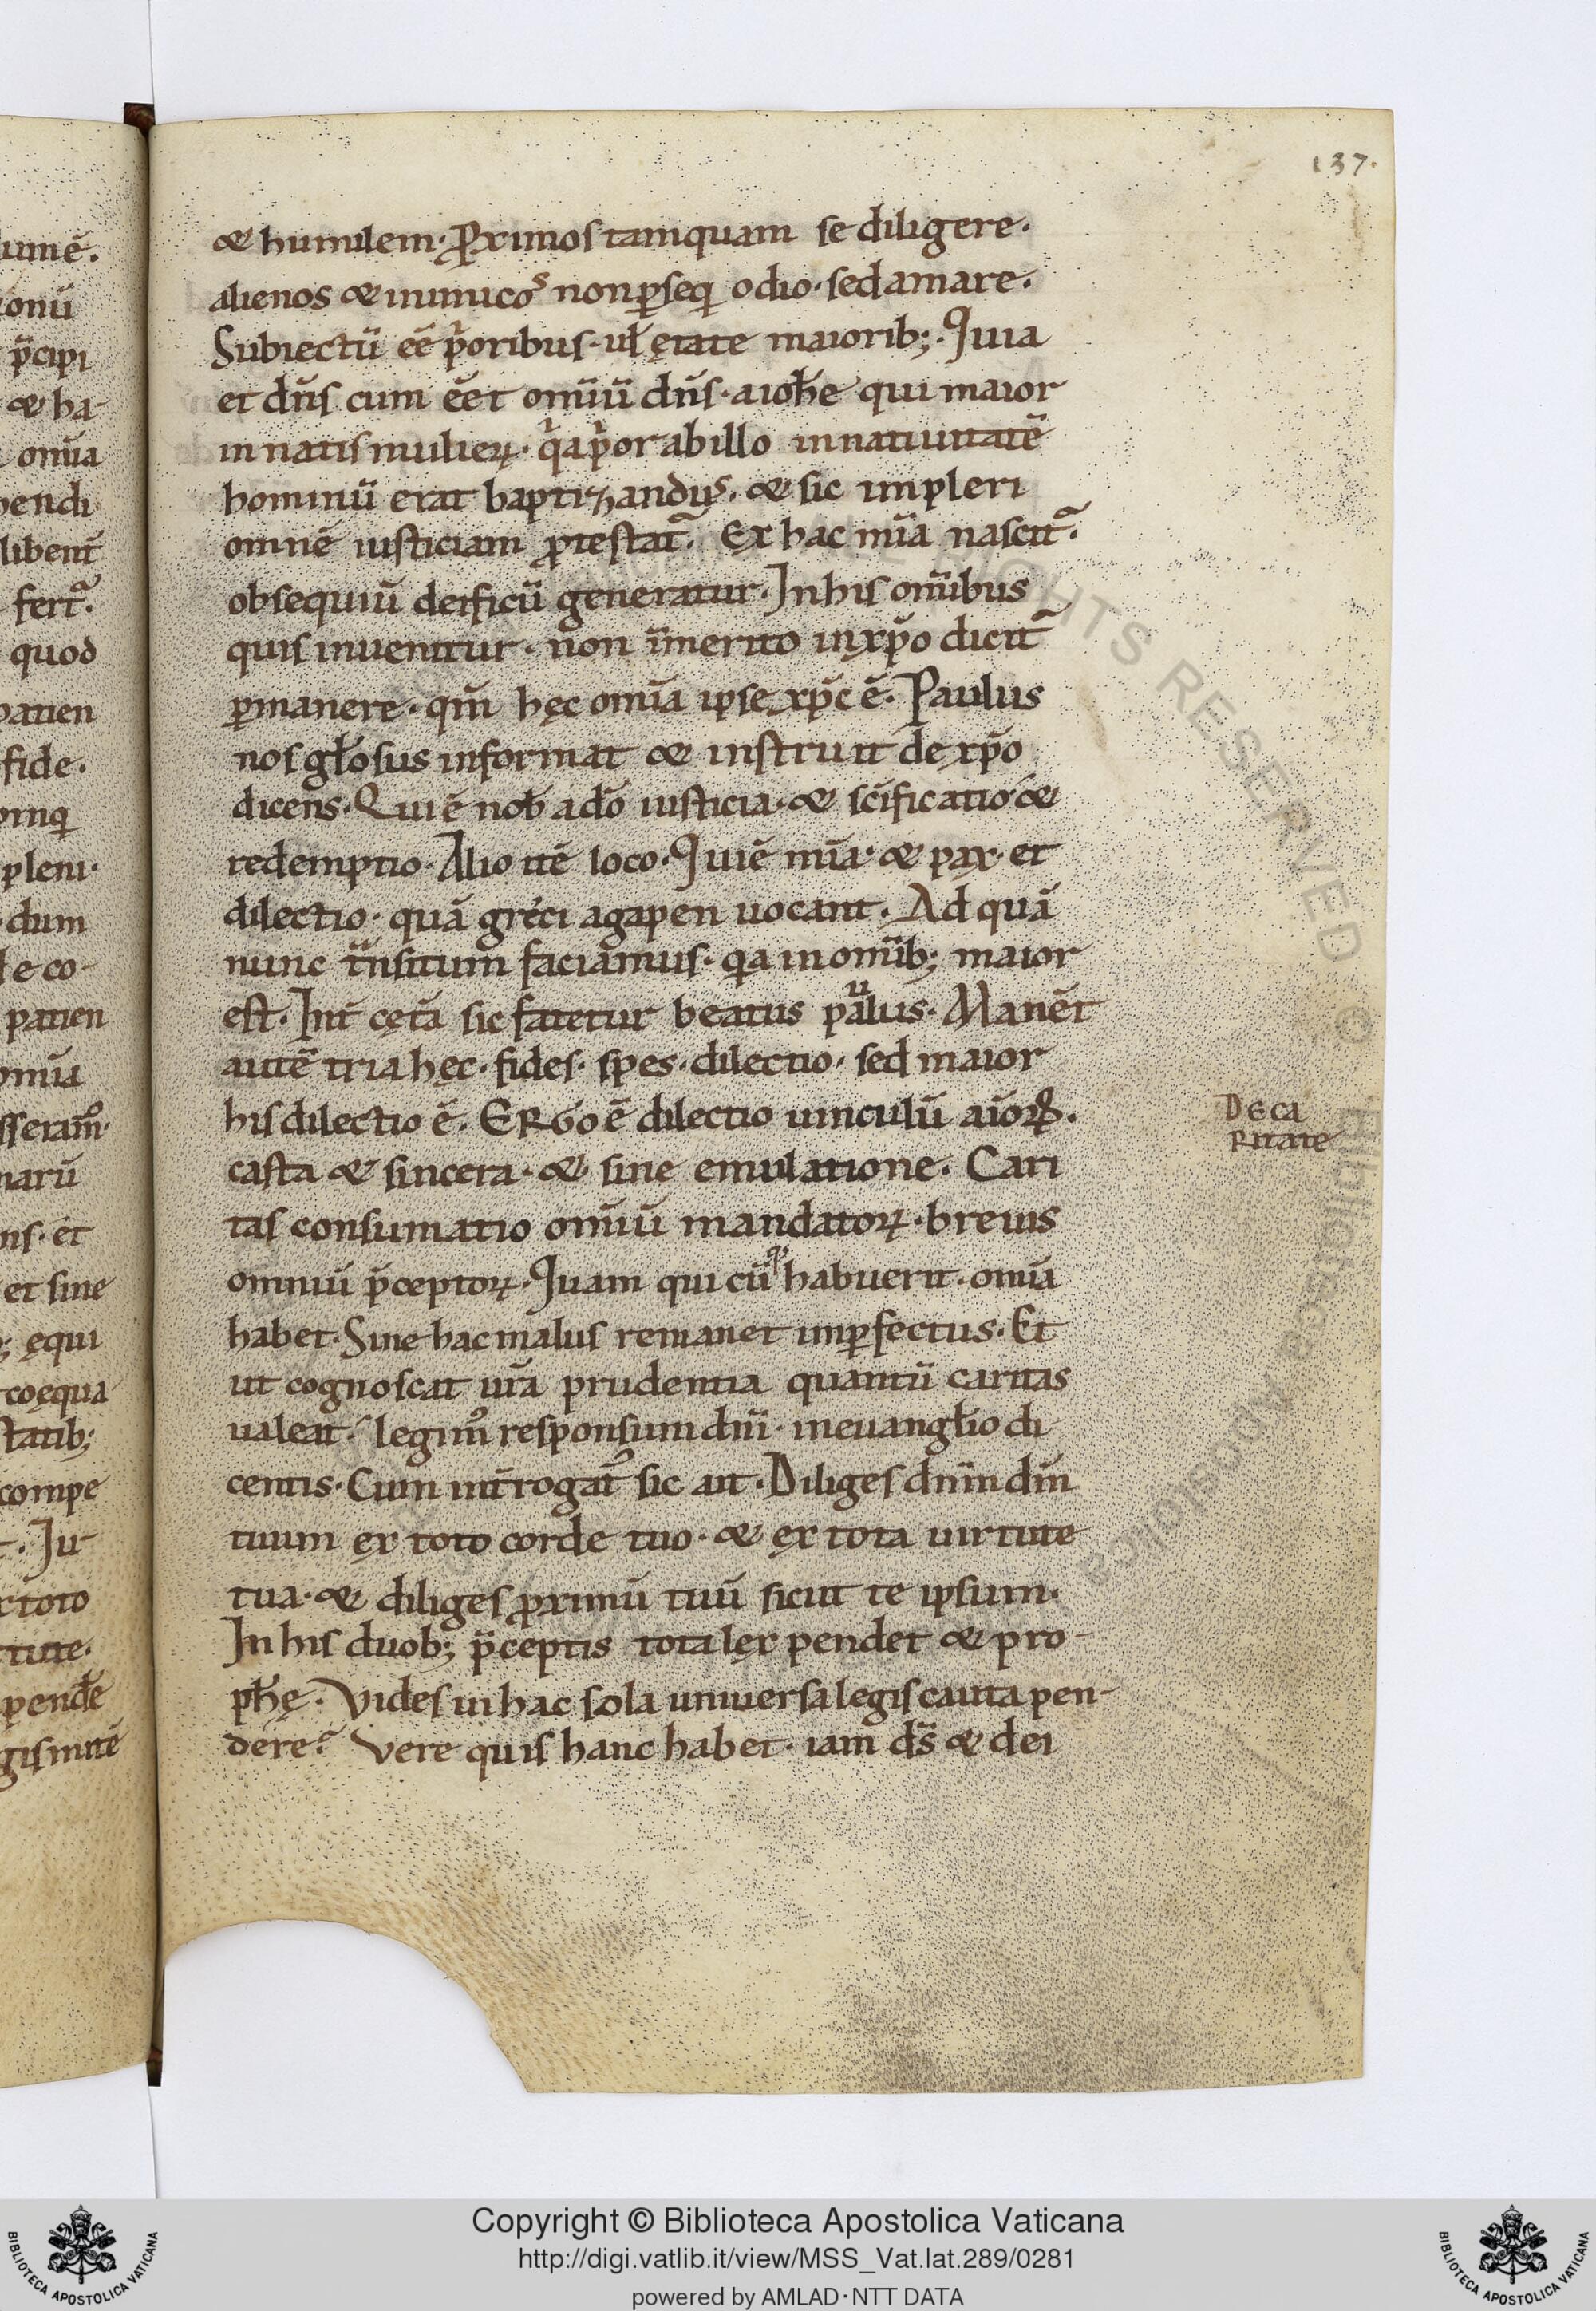 137.
& humilem· p̄ximos tamquam se diligere·
alienos & inimicos non p̱seq̄ odio· sed amare·
Subiectū eē p̄oribus· ul̄ ętate maiorib;· Quia
et dn̄s cum eēt omīū dn̄s· a ioh̄e qui maior
in natis mulierꝝ· q̄a p̄or ab illo in natiuitatē
hominū erat baptizandus· & sic impleri
omnē iusticiam ꝓtestat᷑· Ex hac mīa nascit᷑·
obsequiū deificū generatur· In his omībus
quis inuenitur· non īmerito in xp̄o dicit᷑
ꝑmanere· qm̄ hęc omīa ipse xp̄c ē· Paulus
nos gl̄osus informat & instruit de xp̄o
dicens· Qui ē nob̄ a dō iusticia· & sc̄ificatio· &
redemptio· Alio itē loco· Qui ē mīa· & pax· et
dilectio· quā greci agapen uocant· Ad quā
nunc tn̄situm faciamus· qa in omīb; maior
est· Int̄ cęt̄a sic fatetur beatus paulus· Manēt
autē tria hęc· fides· spes· dilectio· sed maior
his dilectio ē· ERGO ē dilectio uinculū aīorꝝ·
casta & sincera· & sine emulatione· Cari
tas consumatio omīū mandatorꝝ· breuis
omniū p̄ceptorꝝ· Quam qui cū qꝫ habuerit· omīa
habet· Sine hac malus remanet imꝑfectus· Et
ut cognoscat ur̄a prudentia quantū caritas
ualeat· legim᷒ responsum dnī· in euangl̄io di
centis· Cum int̄rogat᷒ sic ait· Diliges dnm̄ dm̄
tuum ex toto corde tuo· & ex tota uirtute
tua· & diliges ꝓximū tuū sicut te ipsum·
In his duob; p̄ceptis tota lex pendet & pro-
ph̄ę· Vides in hac sola uniuersa legis cauta pen-
dere? Vere quis hanc habet· iam ds̄ & dei
DE CA
RITATE
Copyright © Biblioteca Apostolica Vaticana
http://digi.vatlib.it/view/MSS_Vat.lat.289/0281
powered by AMLAD·NTT DATA
BIBLIOTECA APOSTOLICA VATICANA
BIBLIOTECA APOSTOLICA VATICANA